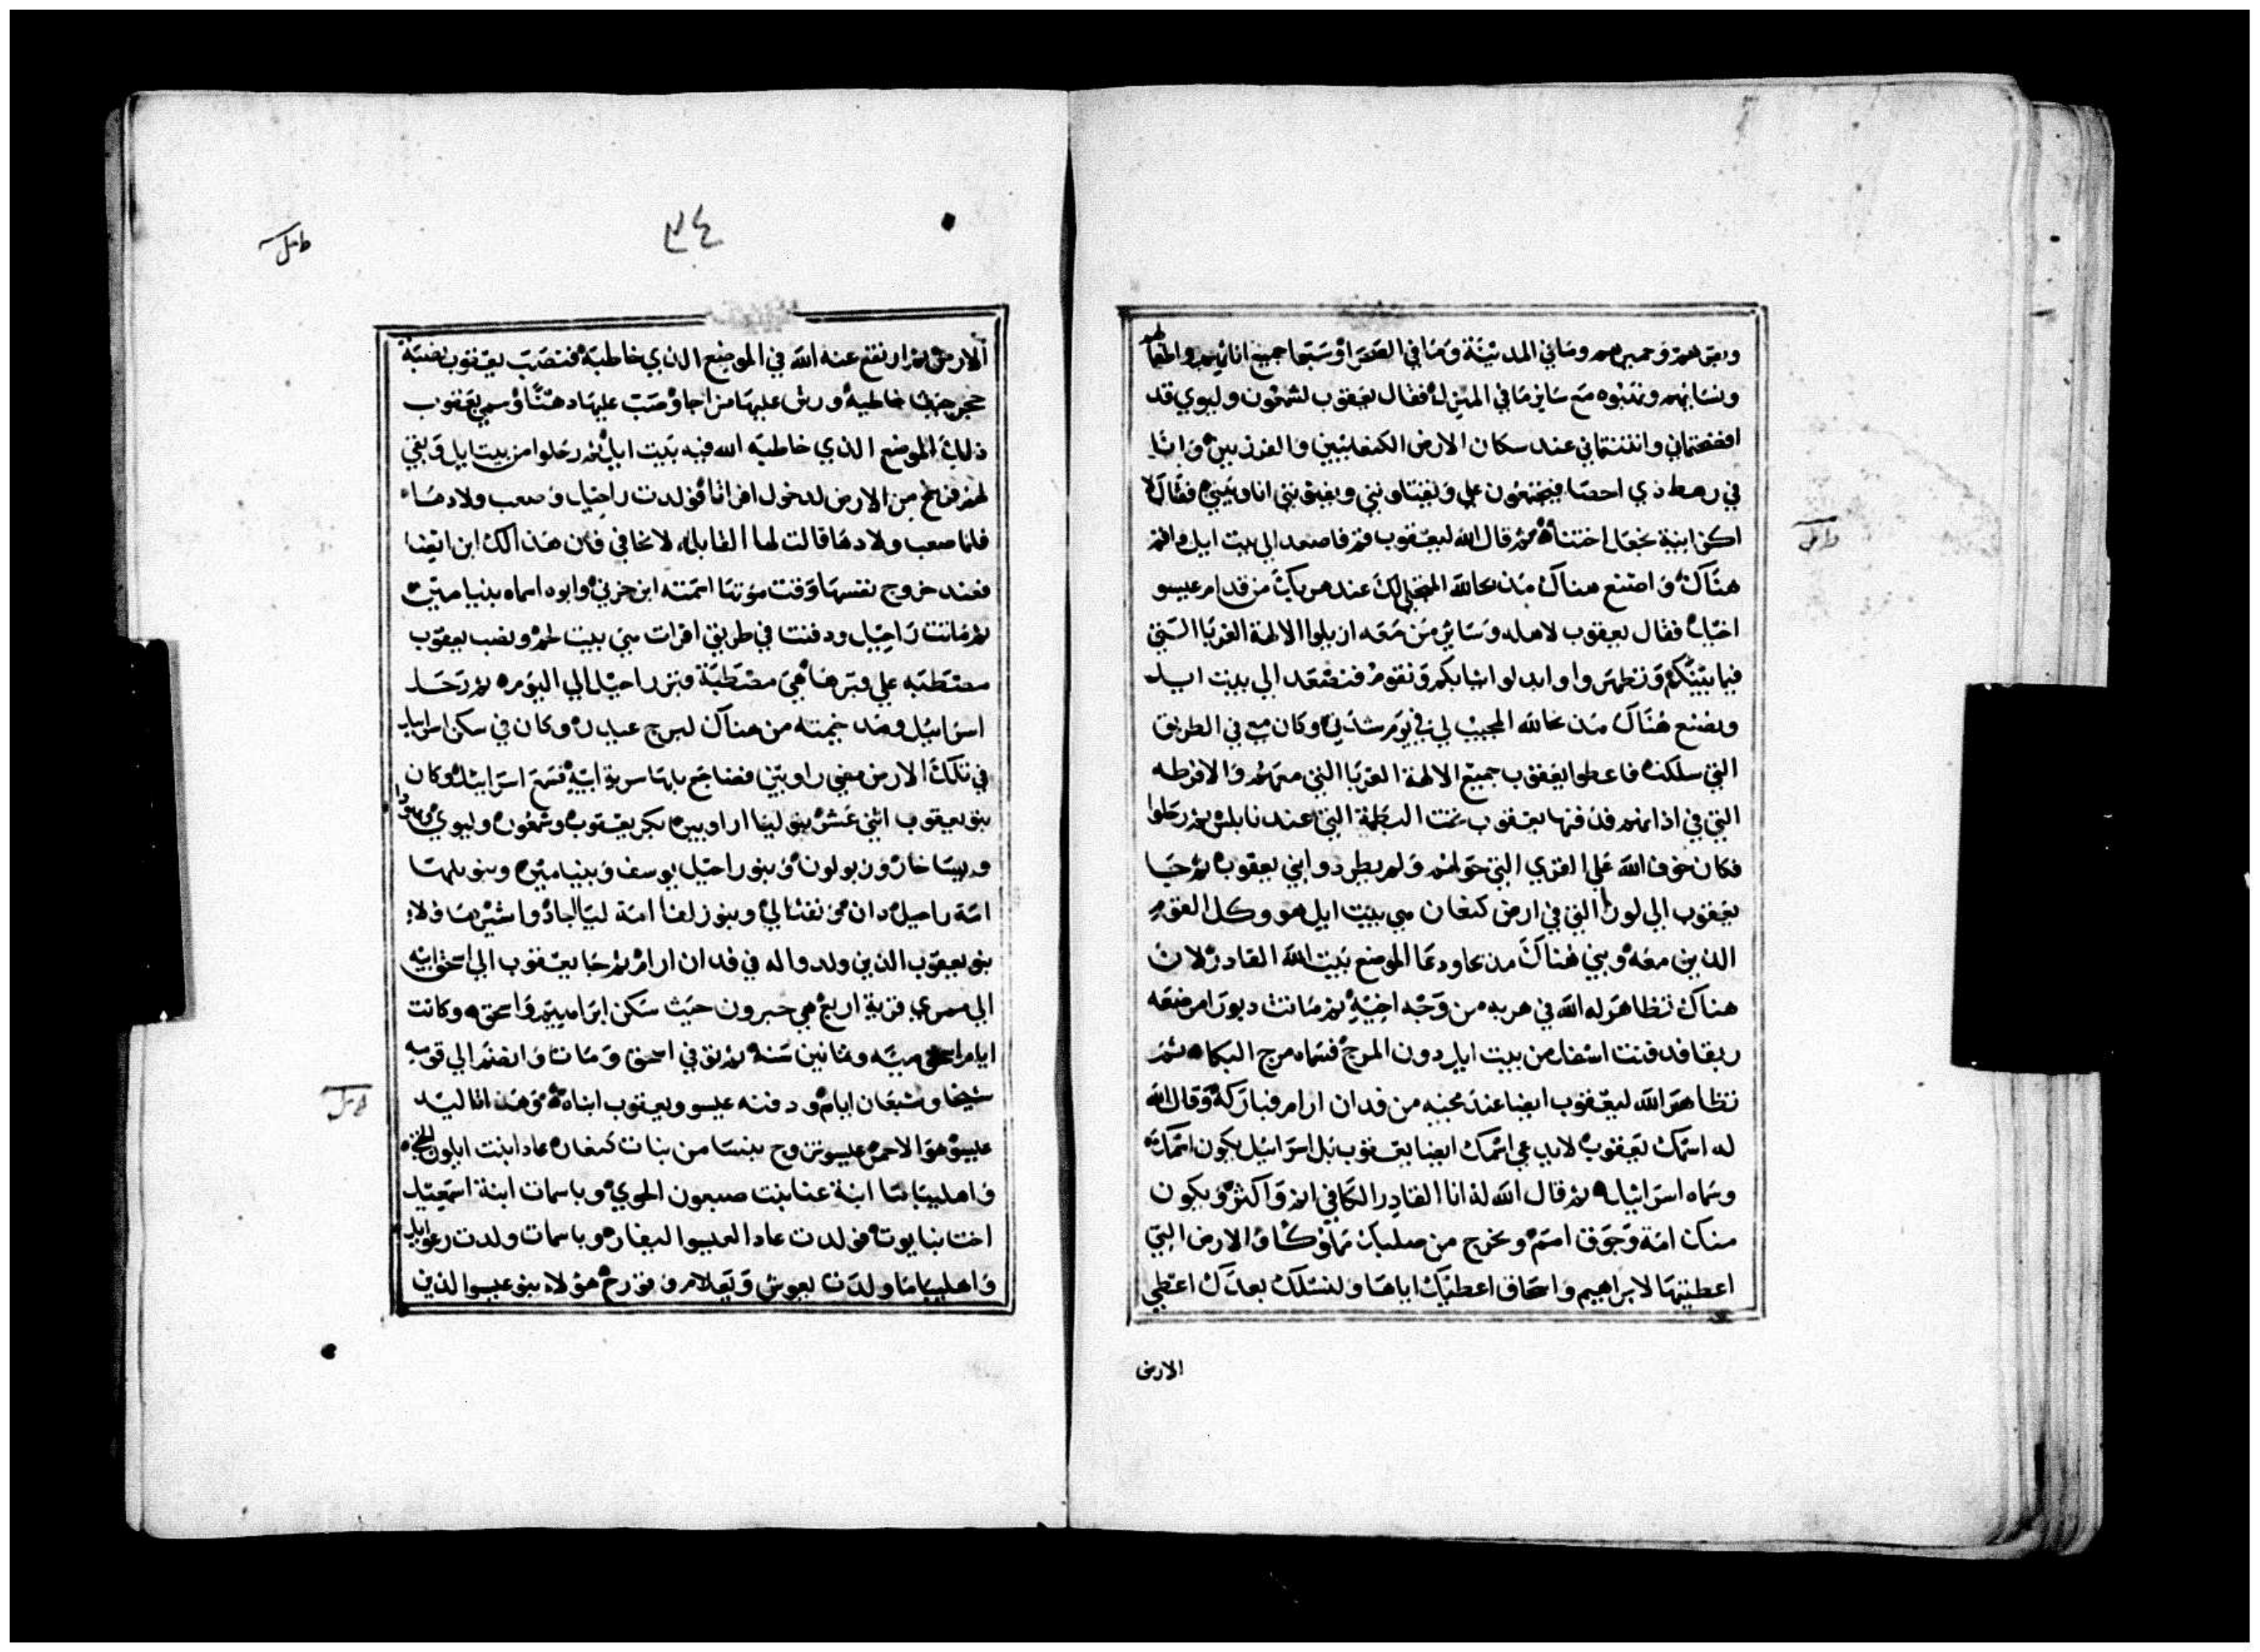 وبقرهم وحميرهم وما في المدينة وما في الصحرا وسبوا جميع اناثهم واطفالهم
ونسائهم ونهبوه مع ساير ما في المنزل فقال يعقوب لشمعون وليوي قد
عند سكان الارض الكنعانيين والفرزيين وانا
في رهط ذي احصا فيجتمعون علي ويقتلونني ويفنونني انا وبيتي فقالا
اكزانية يجعل اختنا ثم قال الله ليعقوب قم فاصعد الي بيت ايل واقم
هناك واصنع هناك مذبحا لله المتجلي لك عند هربك من قدام عيسو
اخيك فقال يعقوب لاهله وساير من معه ازيلوا الالهة الغربا التي
فيما بينكم وتطهروا وابدلوا ثيابكم ونقوم فنصعد الي بيت ايل
ونصنع هناك مذبحا لله المجيب لي في يوم شدتي وكان معي في الطريق
التي سلكته فاعطوا يعقوب جميع الالهة الغربا التي معهم والاقرطه
التي في اذانهم فدفنها يعقوب تحت البطمة التي عند نابلس ثم رحلوا
فكان خوف الله علي القري التي حولهم ولم يطردوا بني يعقوب ثم جا
يعقوب الي لوز التي في ارض كنعان هي بيت ايل هو وكل القوم
الذين معه وبني هناك مذبحا ودعا الموضع بيت الله القادر لان
هناك تظاهر له الله في هربه من وجه اخيه ثم ماتت دبورا مرضعه
ربقا فدفنت اسفل من بيت ايل دون المرج فسماه مرج البكاء ثم
تظاهر الله ليعقوب ايضا عند مجيه من فدان ارام فباركه وقال الله
له اسمك يعقوب لا يدعي اسمك ايضا يعقوب بل اسراييل يكون اسمك
وسماه اسراييل ثم قال الله له انا القادر الكافي انم واكثر ويكون
منك امة وجوق امم ويخرج من صلبك ملوك والارض التي
اعطيتها لابراهيم واسحاق اعطيك اياها ولنسلك بعدك اعطي
الارض
٣٤
الارض ثم ارتفع عنه الله في الموضع الذي خاطبه فنصب يعقوب نصبة
حجر حيث خاطبه ورش عليها مزاجا وصب عليها دهنا وسمي يعقوب
ذلك الموضع الذي خاطبه الله فيه بيت ايل ثم رحلوا من بيت ايل وبقي
لهم فرسخ من الارض لدخول افراتا فولدت راحيل وصعب ولادها
فلما صعب ولادها قالت لها القابله لا تخافي فان هذا لك ابن ايضا
فعند خروج نفسها وقت موتها اسمته ابن حزني وابوه اسماه بنيامين
ثم ماتت راحيل ودفنت في طريق افرات هي بيت لحم ونصب يعقوب
مصطبه علي قبرها هي مصطبة قبر راحيل الي اليوم ثم رحل
اسراييل ومد خيمته من هناك لبرج عيدر وكان في سكن اسراييل
في تلك الارض مضي راوبين فضاجع بلها سرية ابيه فسمع اسراييل وكان
بنو يعقوب اثني عشر بنو ليا راوبين بكر يعقوب وشمعون وليوي ويهودا
ويساخار وزبولون وبنو راحيل يوسف وبنيامين وبنو بلها
امة راحيل دان ونفتالي وبنو زلفا امة ليا جاد واشير هاولاء
بنو يعقوب الذين ولدوا له في فدان ارام ثم جا يعقوب الي اسحق ابيه
الي ممري قرية اربع هي حبرون حيث سكن ابراهيم واسحق وكانت
ايام اسحق ميه وثمانين سنه ثم توفي اسحق ومات وانضم الي قومه
شيخا وشبعان ايام ودفنه عيسو ويعقوب ابناه وهذا تاليد
عيسو هو الاحمر عيسو تزوج بنسا من بنات كنعان عادا بنت ايلون الحثي
واهليباما ابنة عنا بنت صبعون الحوي وباسمات ابنة اسمعيل
اخت نبايوت فولدت عادا لعيسو اليفاز وباسمات ولدت رعوايل
واهليباما ولدت يعوش ويعلام وقورح هولاء بنو عيسو الذين